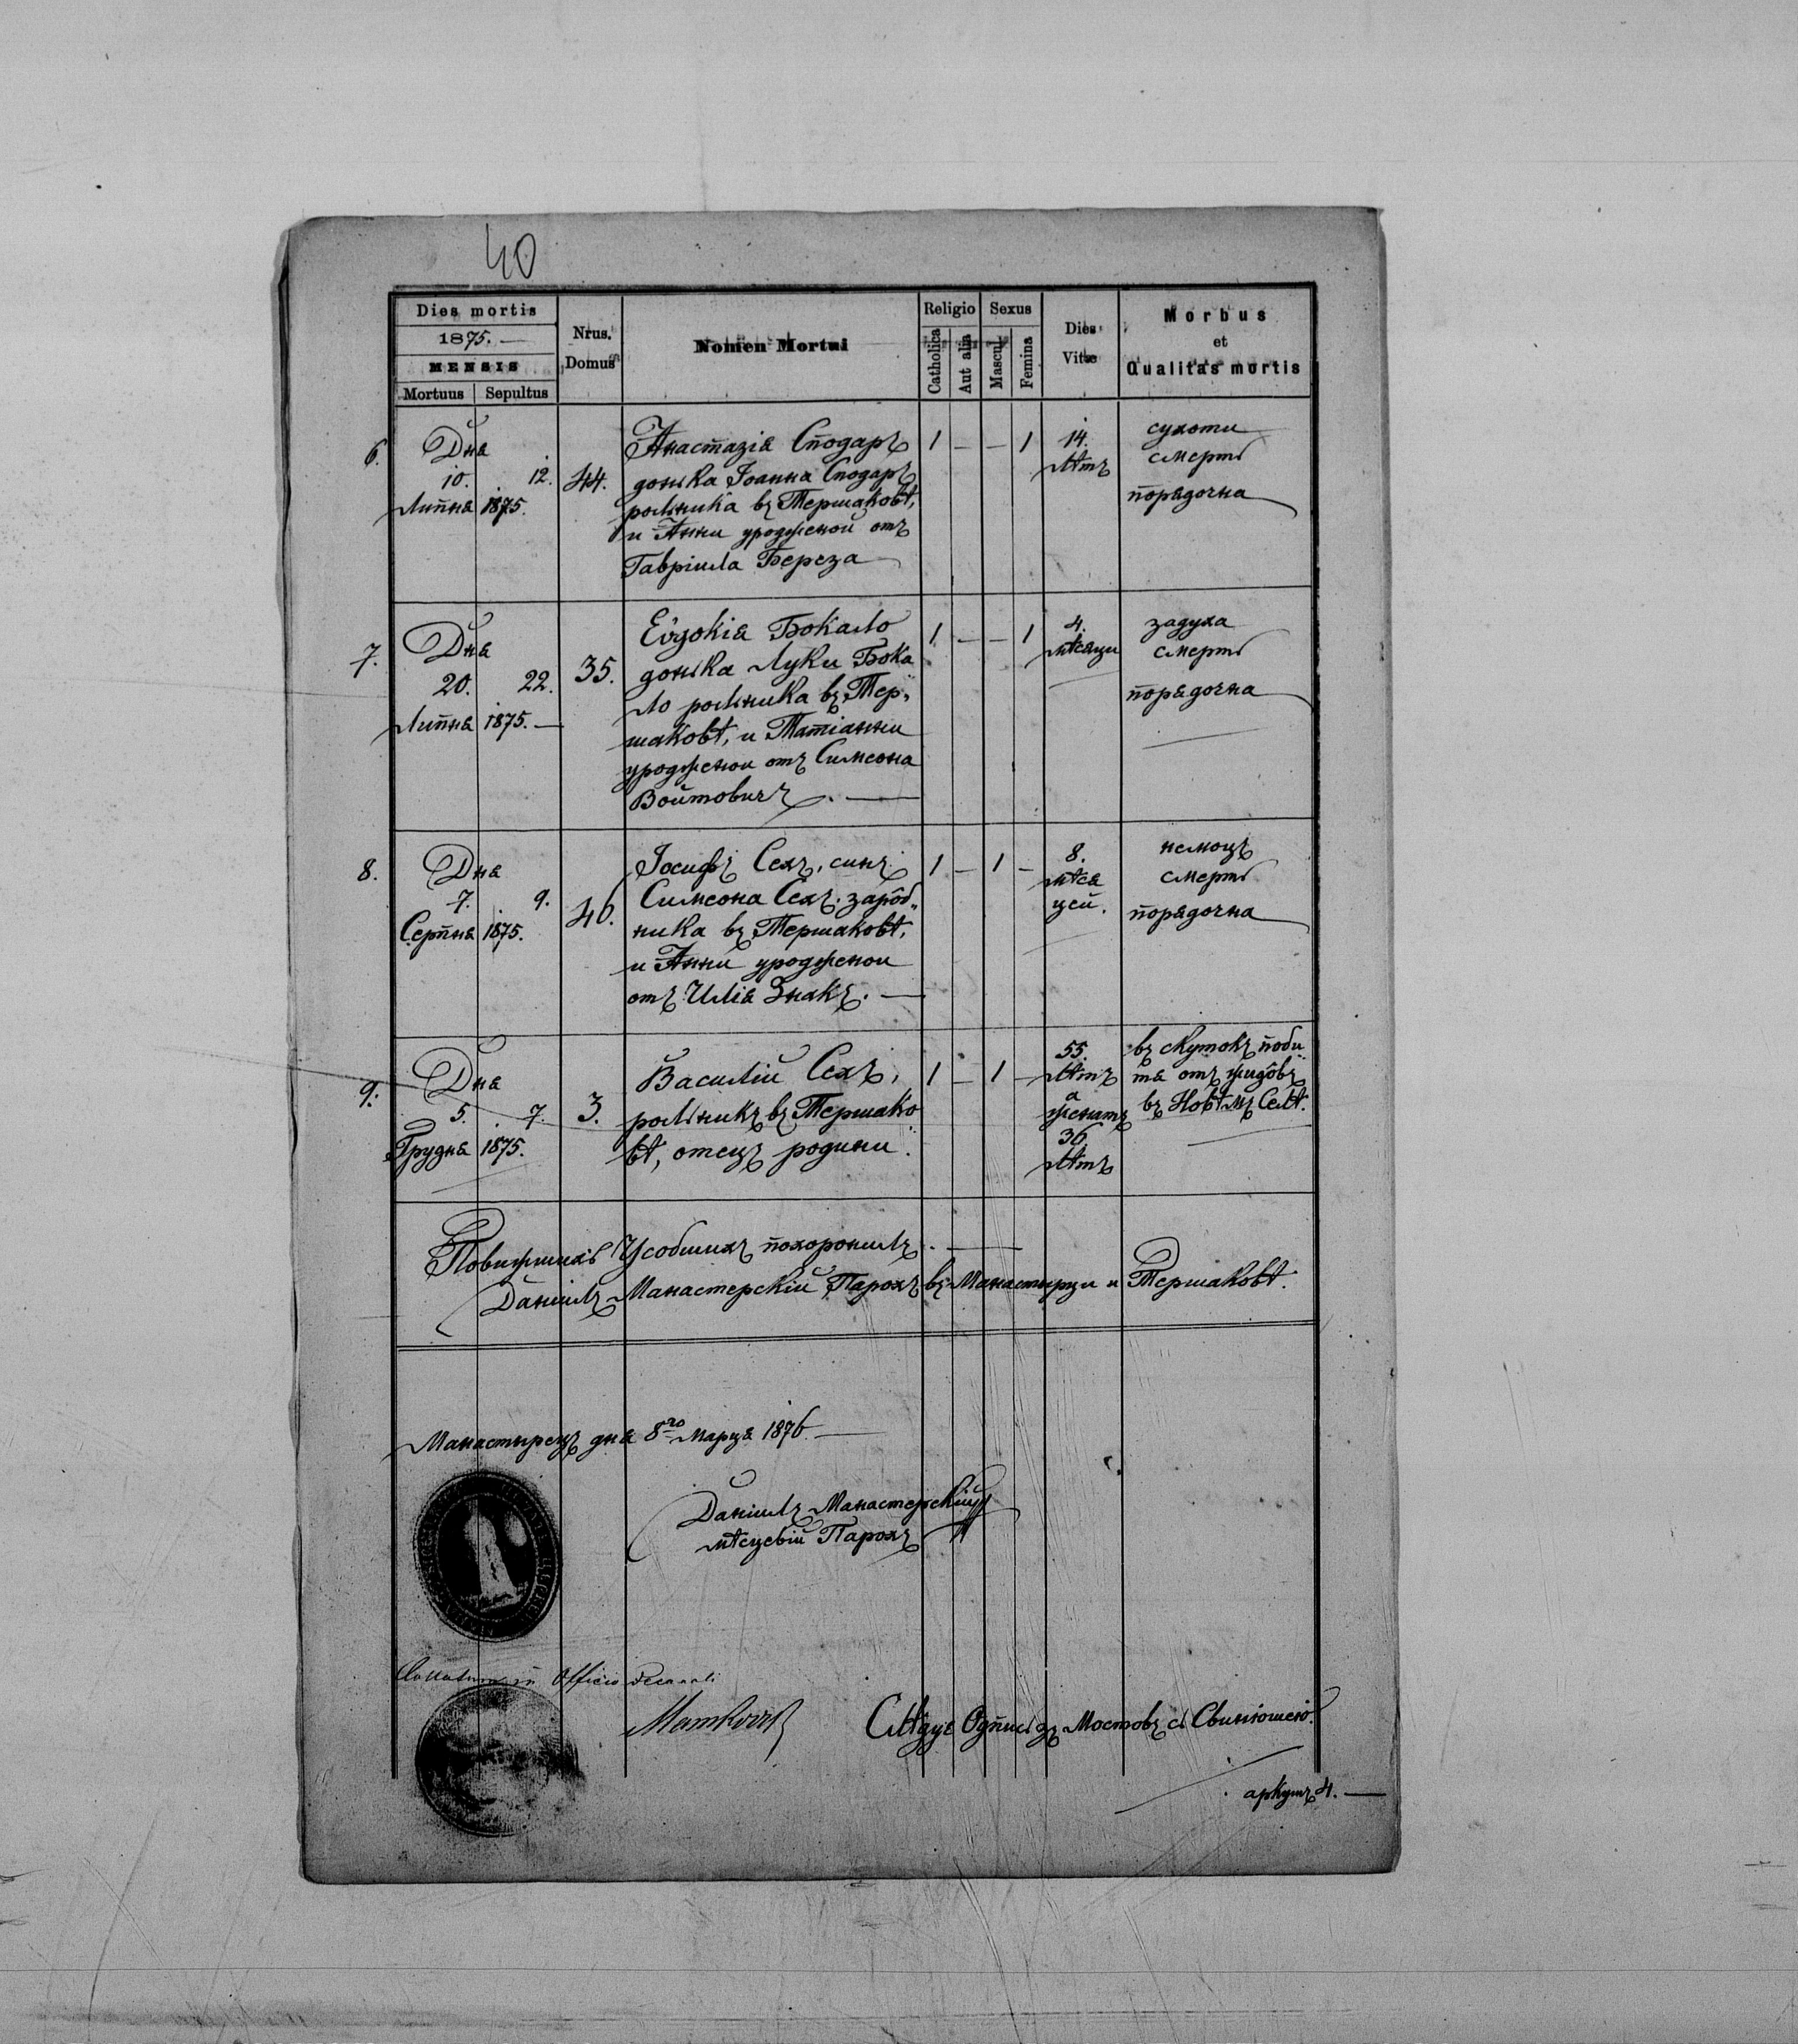 40
Dies mortis
1875. —
MENSIS
Mortuus Sepultus
Nrus. Domus
Nomen Mortui
Religio
Catholica
Aut alia
Sexus
Mascul.
Femina
Dies Vitæ
Morbus
et
Qualitas mortis
6.
Дня
10. 12.
Липня 1875.
44.
Анастазія Сподаръ
донька Іоанна Сподаръ
рольника въ Тершаковѣ,
и Анни уродженой отъ
Гавріила Береза
1 — — 1
14.
лѣтъ
сухоти
смерть
порядочна
7.
Дня
20. 22.
Липня 1875. —
35.
Евдокія Бокало
донька Луки Бока
ло рольника въ Тер„
шаковѣ, и Татіанни
уродженои отъ Симеона
Войтовичъ. —
1 — — 1
4.
мѣсяци
задуха
смерть
порядочна
8.
Дня
7. 9.
Серпня 1875.
46.
Іосифъ Сехъ, синъ
Симеона Сехъ. зарôб„
ника въ Тершаковѣ,
и Анни уродженои
отъ Илія Знакъ. —
1 — 1 —
8.
мѣся
цей.
немоцъ
смерть
порядочна
9.
Дня
5. 7.
Грудня 1875.
3.
Василій Сехъ,
рольникъ въ Тершако
вѣ, отецъ родини.
1 — 1 —
55.
лѣтъ
а
женатъ
36
лѣтъ
въ скутокъ поби
тя отъ жидôвъ
въ Новѣмъ Селѣ.
Повижшихъ Усобшихъ похоронилъ. —
Даніилъ Манастерскій Парохъ въ Манастырци и Тершаковѣ.
Манастырецъ дня 8го Марця 1876. —
Даніилъ Манастерскій
мѣсцевій Парохъ
Collatum in Officio Decanali
Слѣдує Одпись зъ Мостовъ съ Свинюшею.
аркушъ 4. —